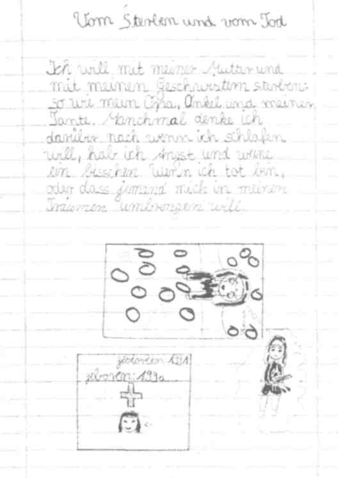 Vom Sterben und vom Tod
Ich will mit meiner Mutter und
mit meinen Geschwistern sterben:
so wi mein Opa, Onkel und meiner
Tante. Manchmal denke ich
darüber nach wenn ich schlafen
will, hab ich Angst und weine
ein bisschen Wenn ich tot bin,
oder dass jemand mich in meinen
Träumen umbrengen will
geboren: 199